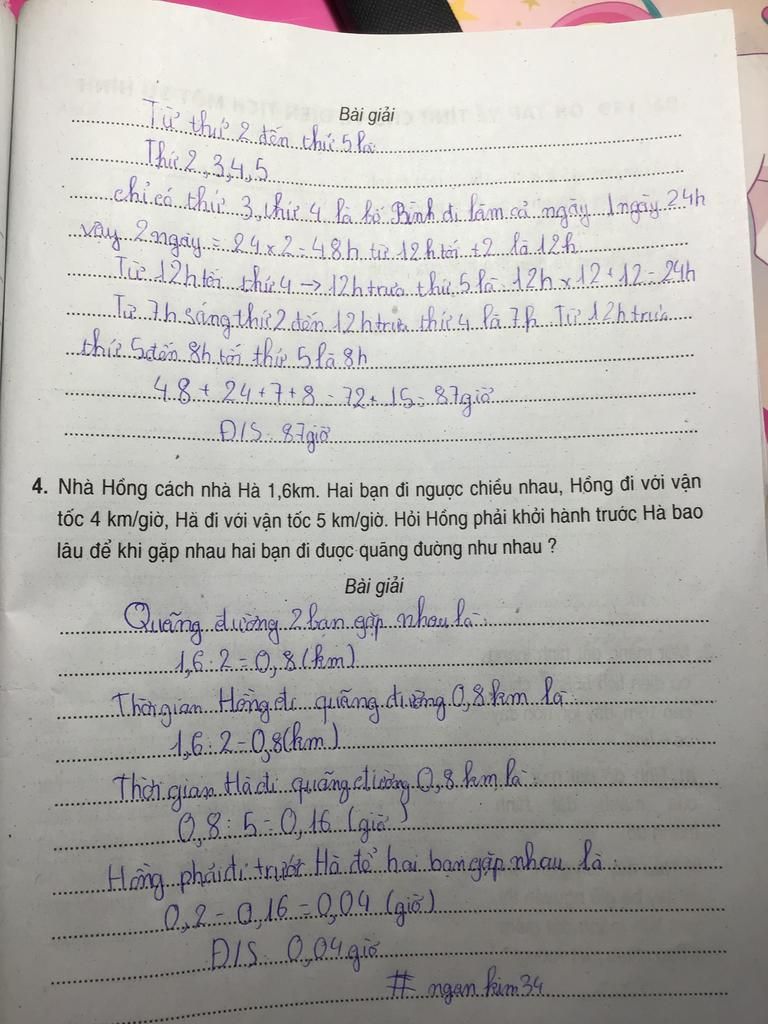 Bài giải
Từ thứ 2 đến thứ 5 là
Thứ 2, 3, 4, 5
chỉ có thứ 3, thứ 4 là bố Bình đi làm cả ngày 1 ngày 24h
vậy 2 ngày = 24 x 2 = 48h từ 12h tối t2 là 12h
Từ 12h tối thứ 4 → 12h trưa thứ 5 là 12h x 12 + 12 = 24h
Từ 7h sáng thứ 2 đến 12h trưa thứ 4 là 7h Từ 12h trưa
thứ 5 đến 8h tối thứ 5 là 8h
48 + 24 + 7 + 8 = 72 + 15 = 87 giờ
Đ/S: 87 giờ
4. Nhà Hồng cách nhà Hà 1,6km. Hai bạn đi ngược chiều nhau, Hồng đi với vận
tốc 4 km/giờ, Hà đi với vận tốc 5 km/giờ. Hỏi Hồng phải khởi hành trước Hà bao
lâu để khi gặp nhau hai bạn đi được quãng đường như nhau ?
Bài giải
Quãng đường 2 bạn gặp nhau là:
1,6 : 2 = 0,8 (km)
Thời gian Hồng đi quãng đường 0,8km là:
1,6 : 2 = 0,8 (km)
Thời gian Hà đi quãng đường 0,8km là
0,8 : 5 = 0,16 (giờ)
Hồng phải đi trước Hà để hai bạn gặp nhau là:
0,2 - 0,16 = 0,04 (giờ)
Đ/S: 0,04 giờ
# ngankim34